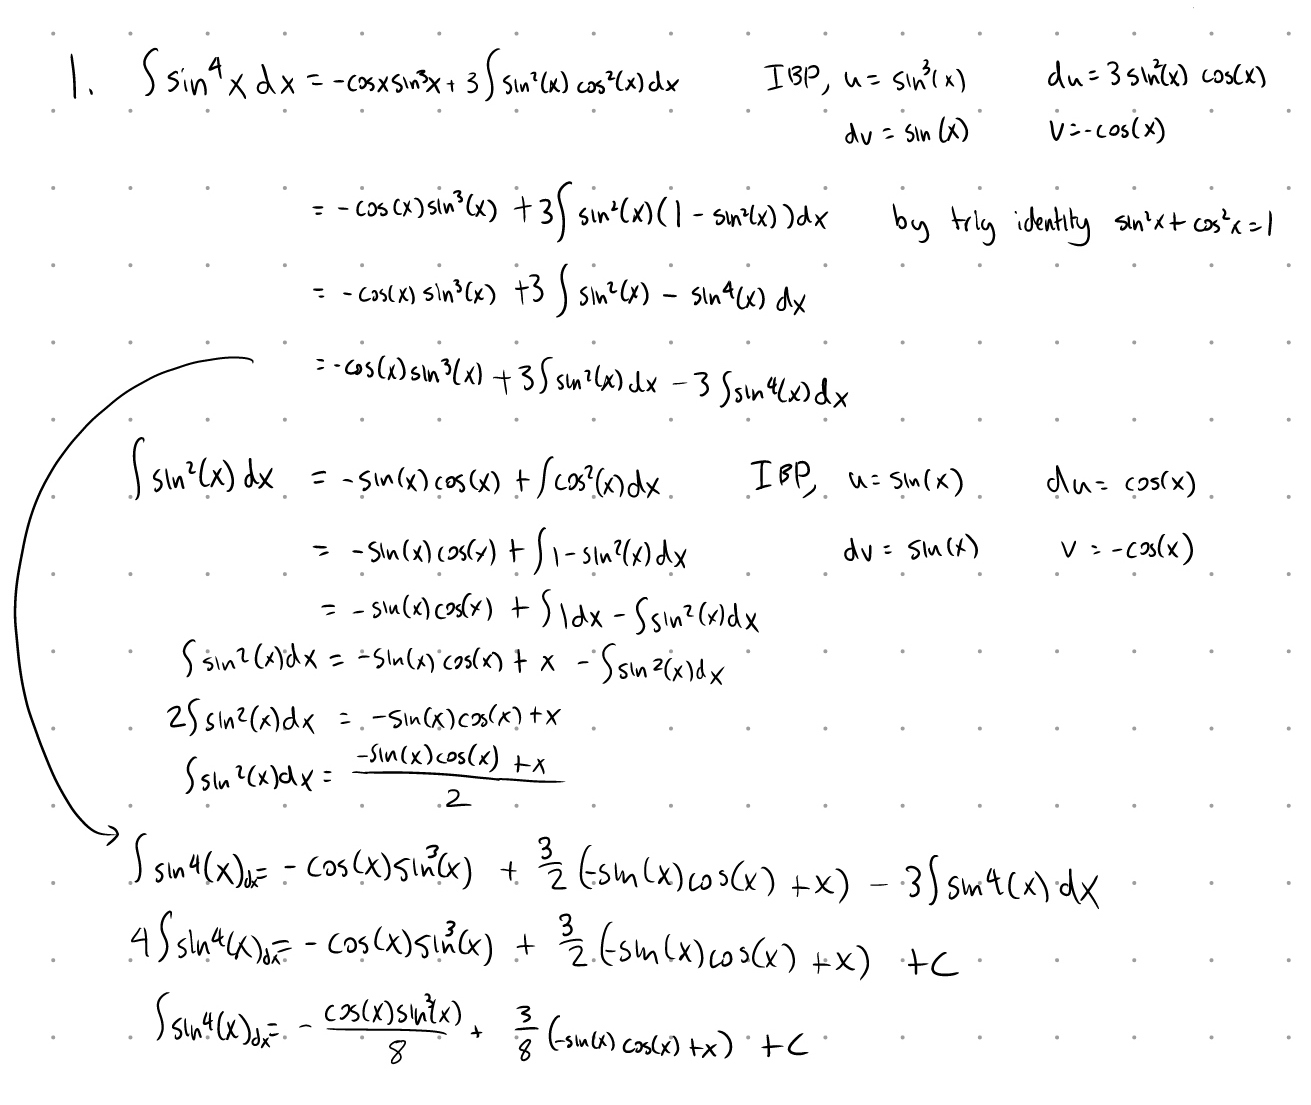 1. ∫ sin⁴x dx = -cosxsin³x + 3∫ sin²(x) cos²(x) dx IBP, u = sin³(x) du = 3 sin²(x) cos(x)
dv = sin(x) v = -cos(x)
= -cos(x) sin³(x) + 3∫ sin²(x)(1 - sin²(x))dx by trig identity sin²x + cos²x = 1
= -cos(x) sin³(x) + 3 ∫ sin²(x) - sin⁴(x) dx
= -cos(x) sin³(x) + 3∫ sin²(x) dx - 3 ∫sin⁴(x) dx
∫ sin²(x) dx = -sin(x) cos(x) + ∫cos²(x) dx IBP, u = sin(x) du = cos(x)
= -sin(x) cos(x) + ∫1 - sin²(x) dx dv = sin(x) v = -cos(x)
= -sin(x) cos(x) + ∫1dx - ∫sin²(x)dx
∫ sin²(x)dx = -sin(x) cos(x) + x - ∫sin²(x)dx
2∫ sin²(x)dx = -sin(x)cos(x) + x
∫sin²(x)dx = (-sin(x)cos(x) + x)/2
∫ sin⁴(x)dx = -cos(x)sin³(x) + 3/2 (-sin(x)cos(x) + x) - 3∫ sin⁴(x) dx
4∫sin⁴(x)dx = -cos(x)sin³(x) + 3/2 (-sin(x)cos(x) + x) + C
∫sin⁴(x)dx = - cos(x)sin³(x)/8 + 3/8 (-sin(x) cos(x) + x) + C